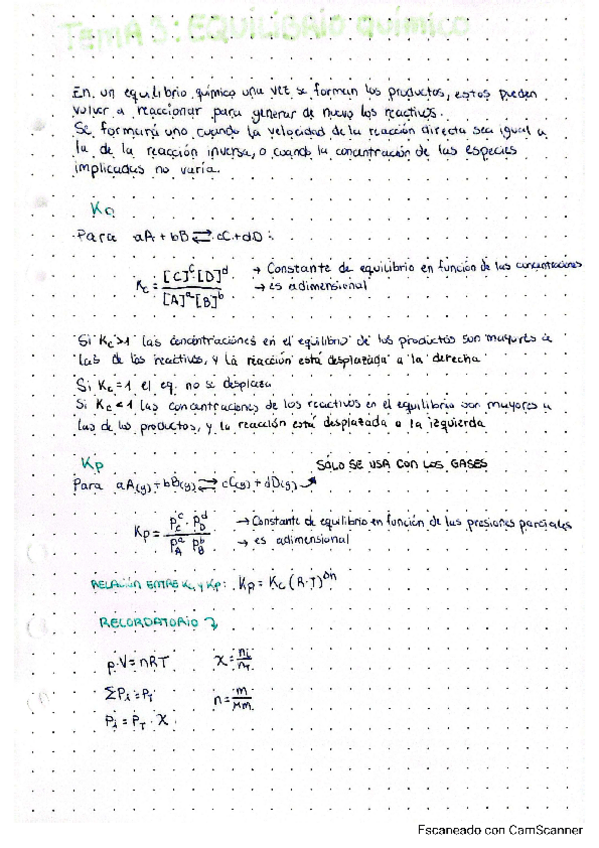 TEMA 3: EQUILIBRIO QUÍMICO
En un equilibrio químico una vez se forman los productos, estos pueden
volver a reaccionar para generar de nuevo los reactivos.
Se formará uno cuando la velocidad de la reacción directa sea igual a
la de la reacción inversa, o cuando la concentración de las especies
implicadas no varía.
Kc
Para aA + bB ⇌ cC + dD:
Kc = [C]^c · [D]^d / [A]^a · [B]^b
→ Constante de equilibrio en función de las concentraciones
→ es adimensional
Si Kc > 1 las concentraciones en el equilibrio de los productos son mayores a
las de los reactivos, y la reacción está desplazada a la derecha
Si Kc = 1 el eq. no se desplaza
Si Kc < 1 las concentraciones de los reactivos en el equilibrio son mayores a
las de los productos, y la reacción está desplazada a la izquierda
Kp
SÓLO SE USA CON LOS GASES
Para aA(g) + bB(g) ⇌ cC(g) + dD(g)
Kp = P_C^c · P_D^d / P_A^a · P_B^b
→ Constante de equilibrio en función de las presiones parciales
→ es adimensional
RELACIÓN ENTRE Kc y Kp: Kp = Kc (R·T)^Δn
RECORDATORIO
p·V = nRT χ = ni / nT
ΣPi = PT n = m / Mm
Pi = PT · χ
Escaneado con CamScanner